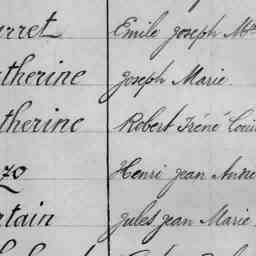 rret Emile Joseph M
therine Joseph Marie
therine Robert Iréné Louis
zo Henri Jean André
tain Jules Jean Marie